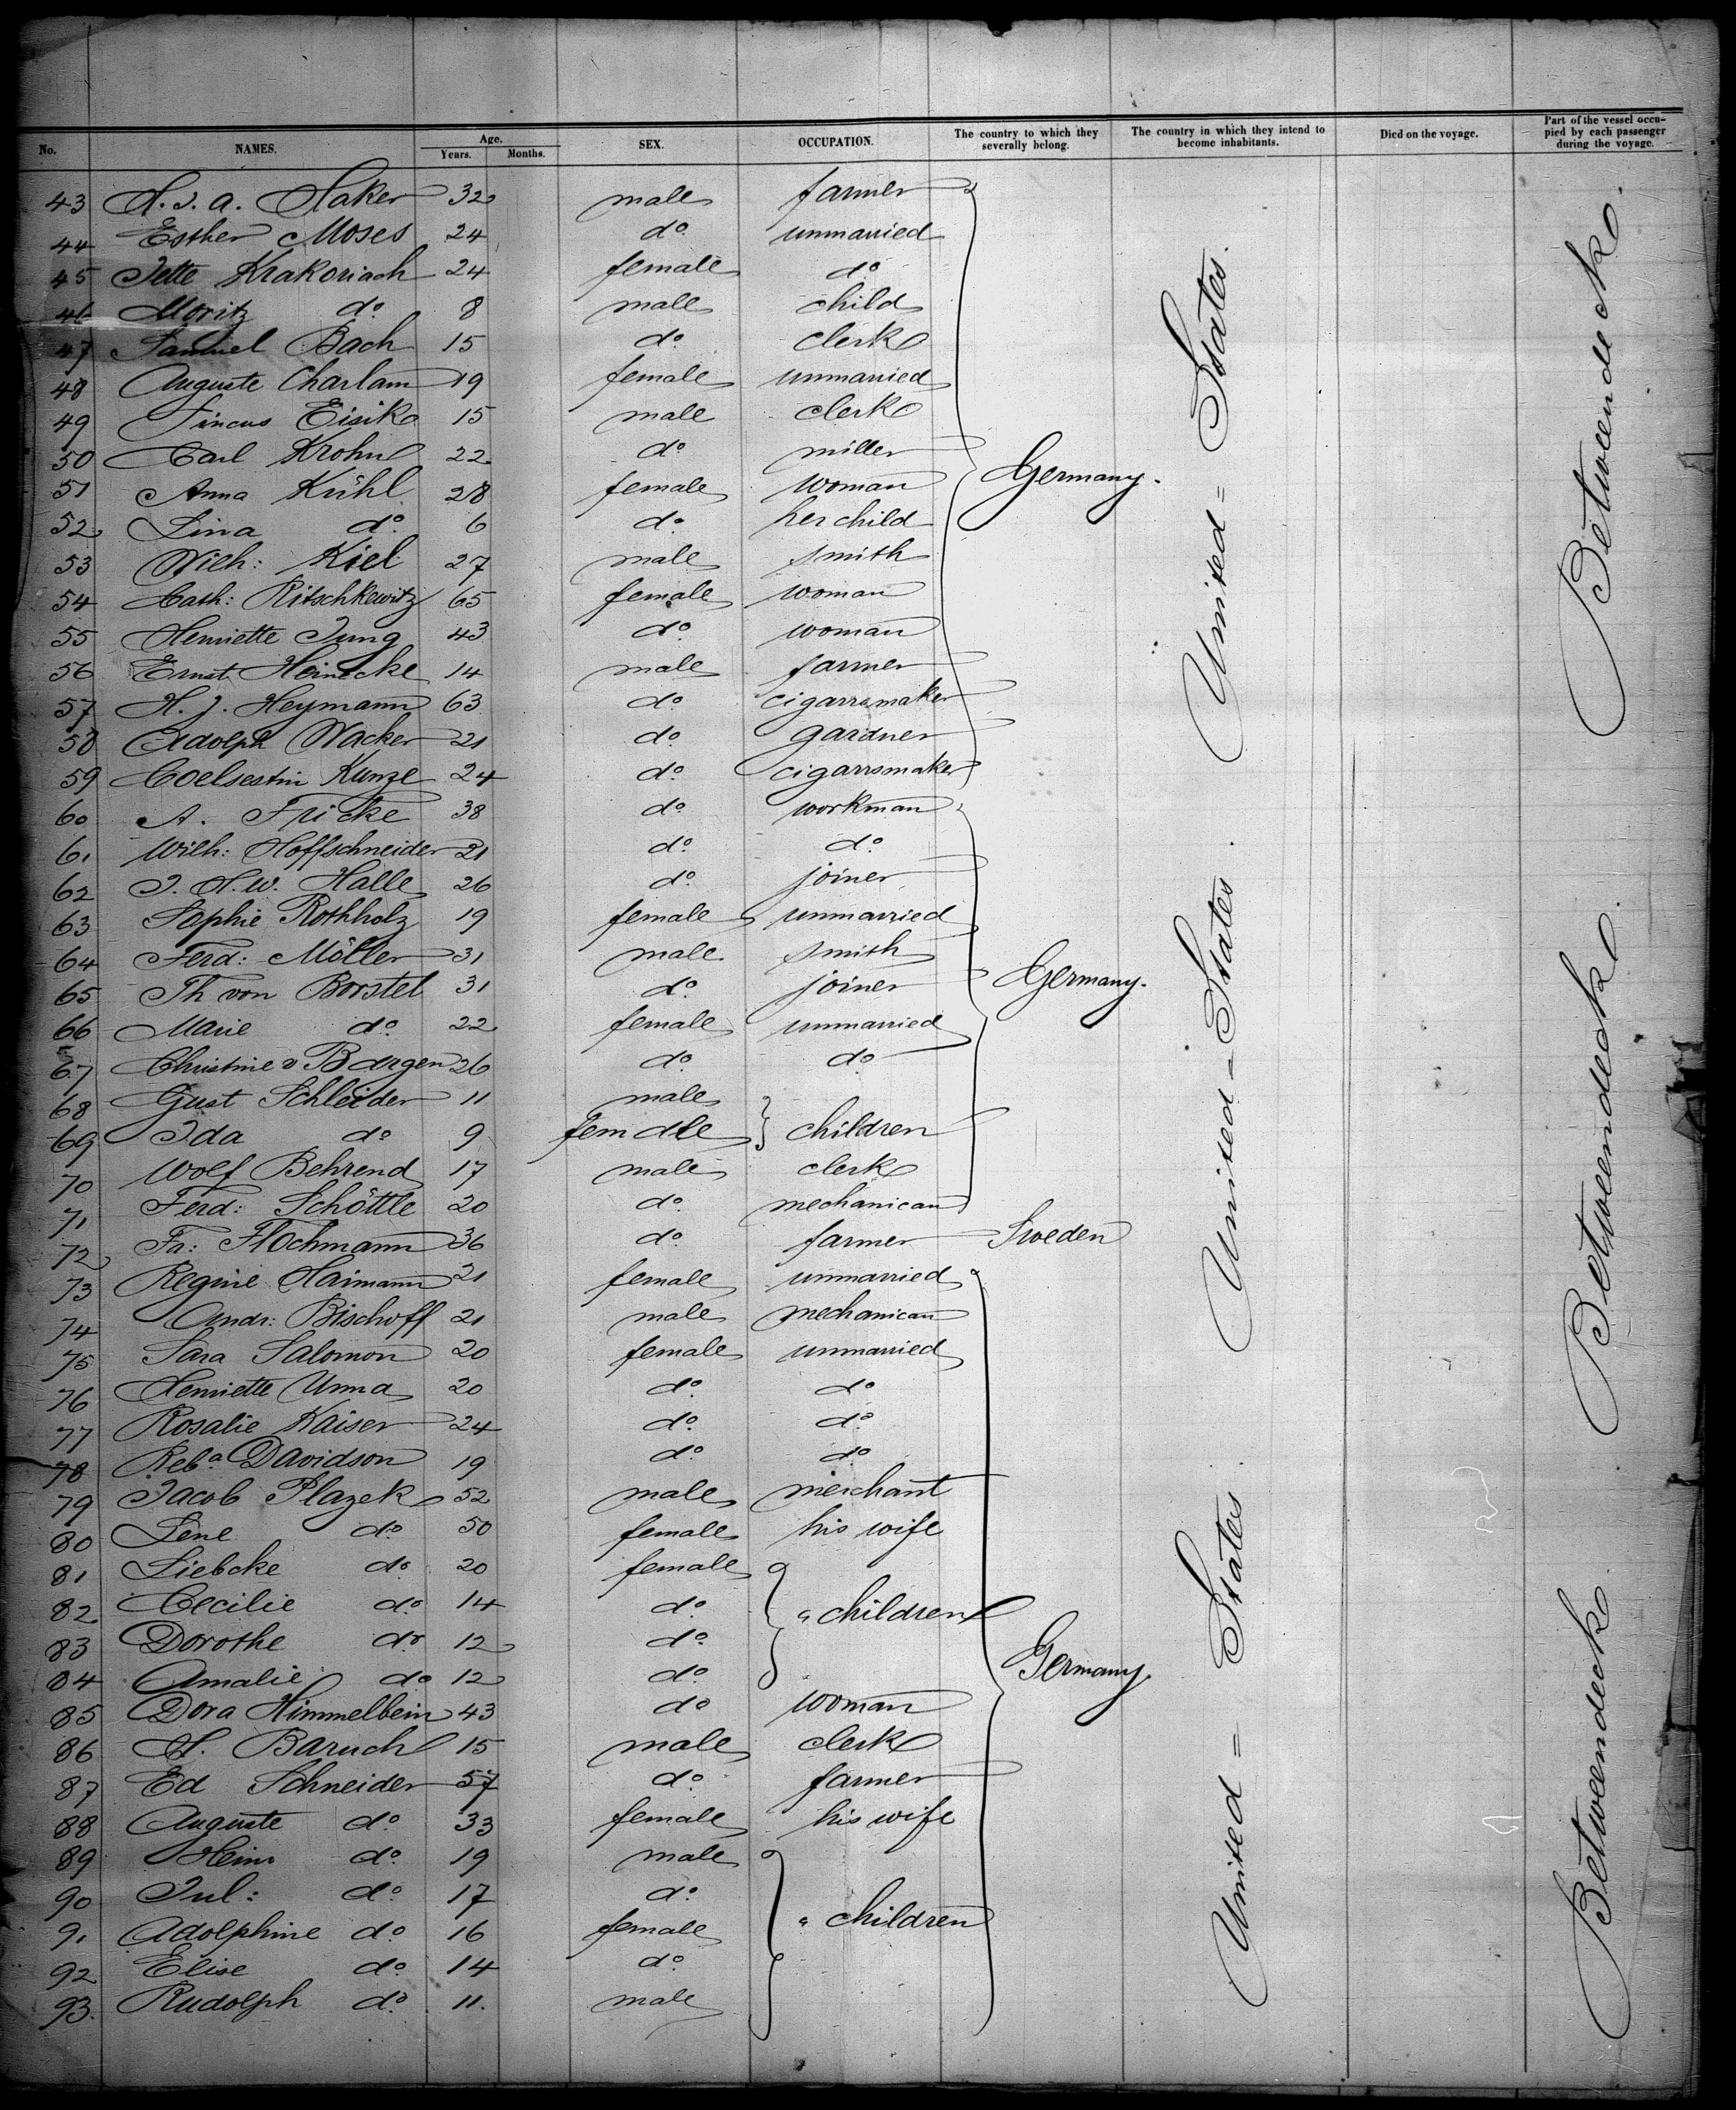 No. NAMES. Age. Years. Months. SEX. OCCUPATION. The country to which they severally belong. The country in which they intend to become inhabitants. Died on the voyage. Part of the vessel occupied by each passenger during the voyage.
43 H. J. A. Haker 32 male farmer
44 Esther Moses 24 do. unmarried
45 Jette Krakoriach 24 female do.
46 Moritz do. 8 male child
47 Samuel Bach 15 do. clerk
48 Auguste Charlam 19 female unmarried
49 Pincus Eisik 15 male clerk
50 Carl Krohn 22 do. miller
51 Anna Kühl 28 female woman Germany.
52 Lina do. 6 do. her child
53 Wilh: Kiel 27 male smith
54 Cath: Ritschkewitz 65 female woman
55 Henriette Jung 43 do. woman
56 Ernst Heinecke 14 male farmer
57 H. J. Heymann 63 do. cigarrsmaker
58 Adolph Wacker 21 do. gardner
59 Coelsestin Kunze 24 do. cigarrsmaker
United = States.
Betweendeck.
60 A. Fricke 38 do. workman
61 Wilh: Hoffschneider 21 do. do.
62 J. H. W. Halle 26 do. joiner
63 Sophie Rothholz 19 female unmarried
64 Ferd: Möller 31 male smith
65 Th von Borstel 31 do. joiner Germany.
66 Marie do. 22 female unmarried
67 Christine v Bargen 26 do. do
68 Gust Schleider 11 male
69 Ida do 9 female children
70 Wolf Behrend 17 male clerk
71 Ferd: Schöttle 20 do. mechanican
72 Fr: Flochmann 36 do. farmer Sweden
United = States.
Betweendeck.
73 Regine Haimann 21 female unmarried
74 Andr: Bischoff 21 male mechanican
75 Sara Salomon 20 female unmarried
76 Henriette Unna 20 do. do
77 Rosalie Kaiser 24 do. do.
78 Reba Davidson 19 do. do
79 Jacob Plazek 52 male merchant
80 Lene do 50 female his wife
81 Liebcke do 20 female
82 Cecilie do. 14 do. " children
83 Dorothe do 12 do.
84 Amalie do 12 do. Germany.
85 Dora Himmelbein 43 do woman
86 H. Baruch 15 male clerk
87 Ed Schneider 57 do. farmer
88 Auguste do. 33 female his wife
89 Heinr do. 19 male
90 Jul: do. 17 do.
91 Adolphine do. 16 female " children
92 Elise do. 14 do.
93. Rudolph do. 11. male
United = States
Betweendeck.